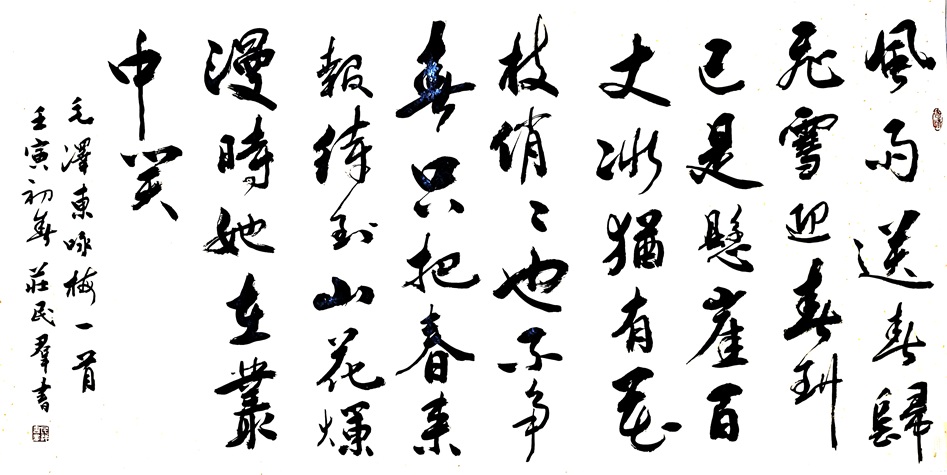 風雨送春歸
飛雪迎春到
已是懸崖百
丈冰猶有花
枝俏〻也不争
春只把春来
報待到山花爛
漫時她在叢
中笑
毛澤東咏梅一首
壬寅初春莊民羣書